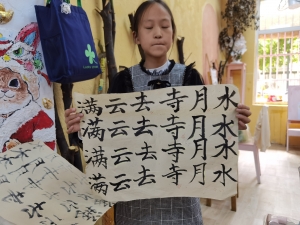 满云去寺月水
满云去寺月水
满云去寺月水
满云去寺月水